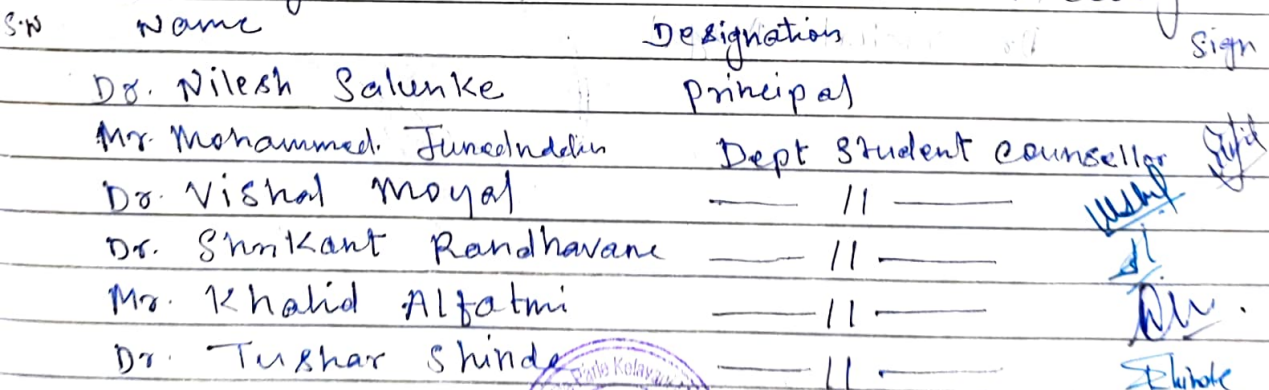 S.N Name Designation Sign
Dr. Nilesh Salunke Principal
Mr. Mohammed. Junedinddin Dept Student counsellor
Dr. Vishal Moyal — 11 —
Dr. Shrikant Randhavane — 11 —
Mr. Khalid Alfatmi — 11 —
Dr. Tushar Shinde — 11 — Shinde
Parle Kelavani